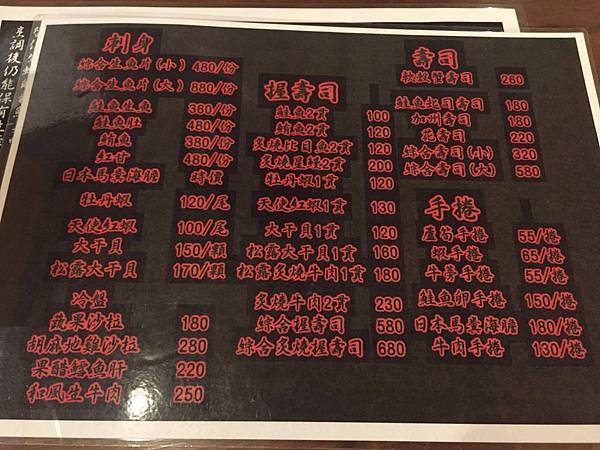 刺身
綜合生魚片(小) 480/份
綜合生魚片(大) 880/份
鮭魚生魚 360/份
鮭魚肚 480/份
鮪魚 380/份
紅甘 480/份
日本馬糞海膽 時價
牡丹蝦 120/尾
天使紅蝦 100/尾
大干貝 150/顆
松露大干貝 170/顆
冷盤
蔬果沙拉 180
胡麻地雞沙拉 280
果醋鱈魚肝 220
和風生牛肉 250
握壽司
鮭魚2貫 100
鮪魚2貫 120
炙燒比目魚2貫 120
炙燒星鰻2貫 200
牡丹蝦1貫 120
天使紅蝦1貫 130
大干貝1貫 120
松露大干貝1貫 160
松露炙燒牛肉1貫 180
炙燒牛肉2貫 230
綜合握壽司 580
綜合炙燒握壽司 680
壽司
軟殼蟹壽司 260
鮭魚起司壽司 180
加州壽司 180
花壽司 220
綜合壽司(小) 320
綜合壽司(大) 580
手捲
蘆筍手捲 55/捲
蝦手捲 65/捲
牛蒡手捲 55/捲
鮭魚卵手捲 150/捲
日本馬糞海膽 180/捲
牛肉手捲 130/捲
烹調後仍能保